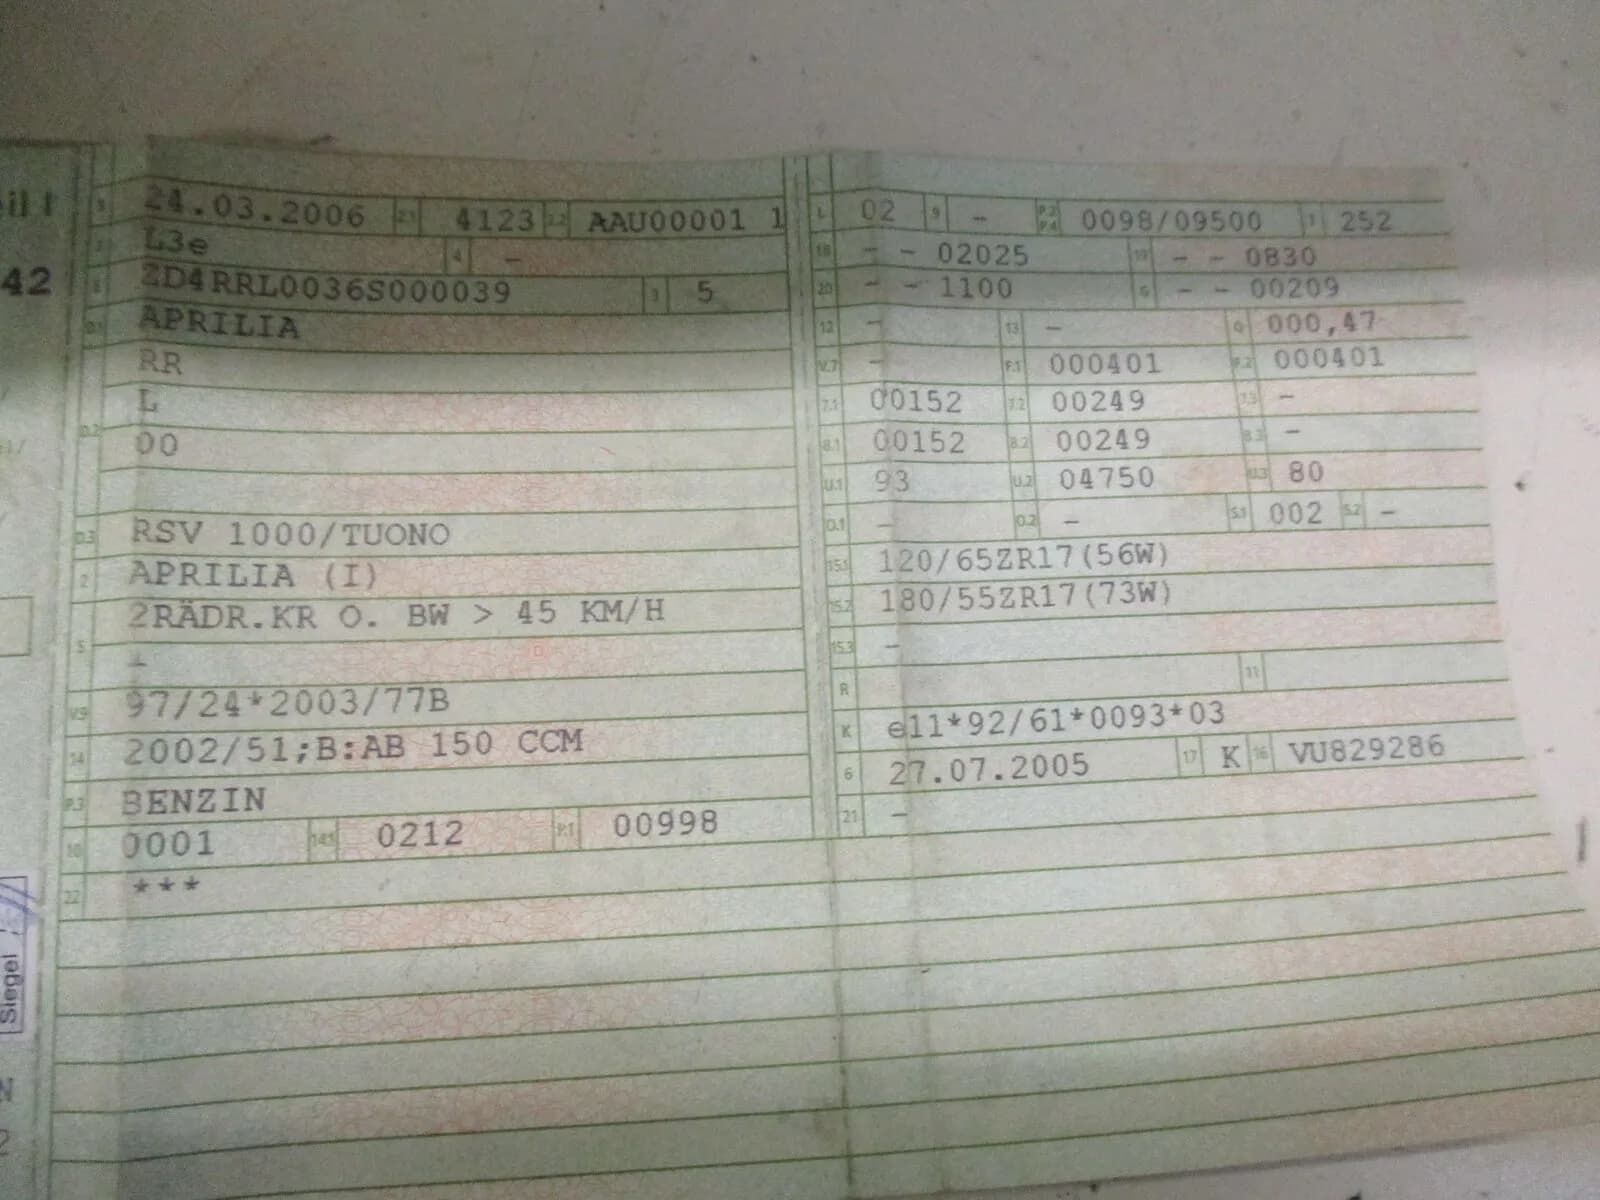 il I
42
B 24.03.2006 2.1 4123 2.2 AAU00001 1
J L3e 4 -
E ZD4RRL0036S000039 3 5
D.1 APRILIA
RR
L
D.2 00
D.3 RSV 1000/TUONO
2 APRILIA (I)
2RÄDR.KR O. BW > 45 KM/H
5 -
V.9 97/24*2003/77B
14 2002/51;B:AB 150 CCM
P.3 BENZIN
10 0001 14.1 0212 P.1 00998
22 ***
L 02 9 - P.2 P.4 0098/09500 T 252
18 - - 02025 19 - - 0830
20 - - 1100 G - - 00209
12 - 13 - Q 000,47
V.7 - F.1 000401 F.2 000401
7.1 00152 7.2 00249 7.3 -
8.1 00152 8.2 00249 8.3 -
U.1 93 U.2 04750 U.3 80
O.1 - O.2 - S.1 002 S.2 -
15.1 120/65ZR17(56W)
15.2 180/55ZR17(73W)
15.3 -
R 11
K e11*92/61*0093*03
6 27.07.2005 17 K 16 VU829286
21 -
Siegel
N
2